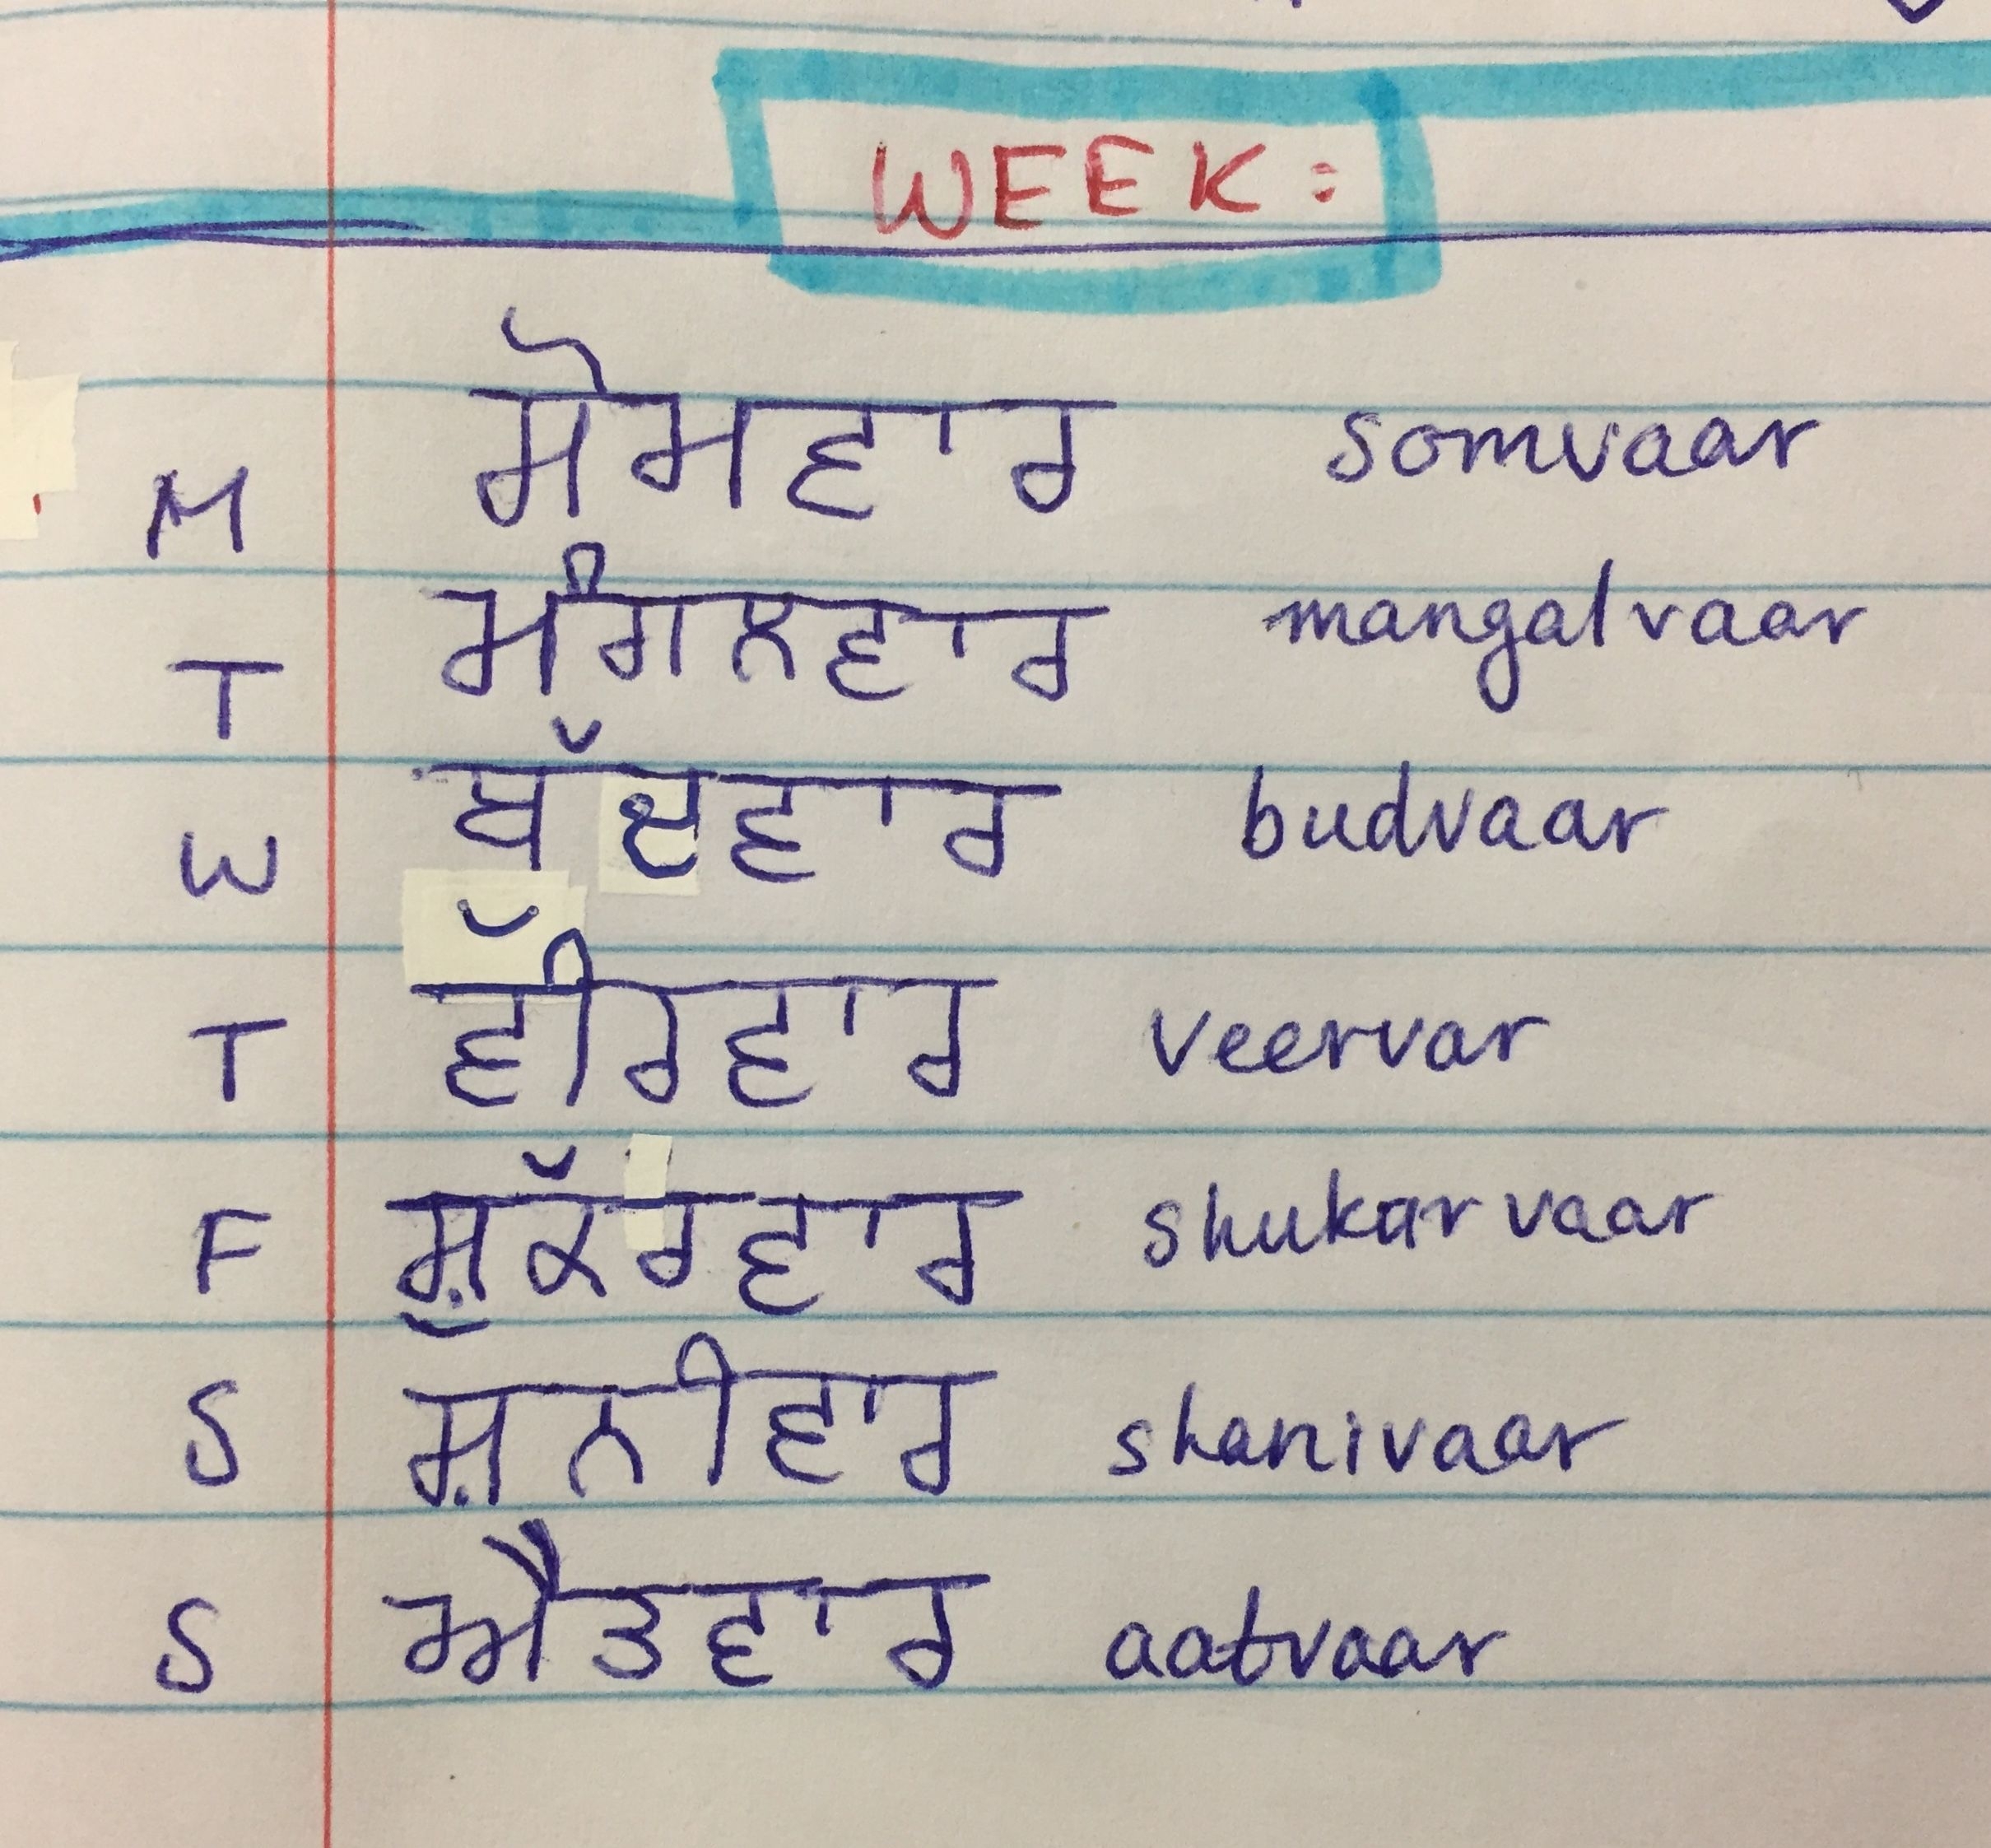 WEEK:
M ਸੋਮਵਾਰ somvaar
T ਮੰਗਲਵਾਰ mangalvaar
W ਬੱਦਵਾਰ budvaar
T ਵੀੱਰਵਾਰ veervar
F ਸ਼ੁਕੱਰਵਾਰ shukarvaar
S ਸ਼ਨੀਵਾਰ shanivaar
S ਐਤਵਾਰ aatvaar